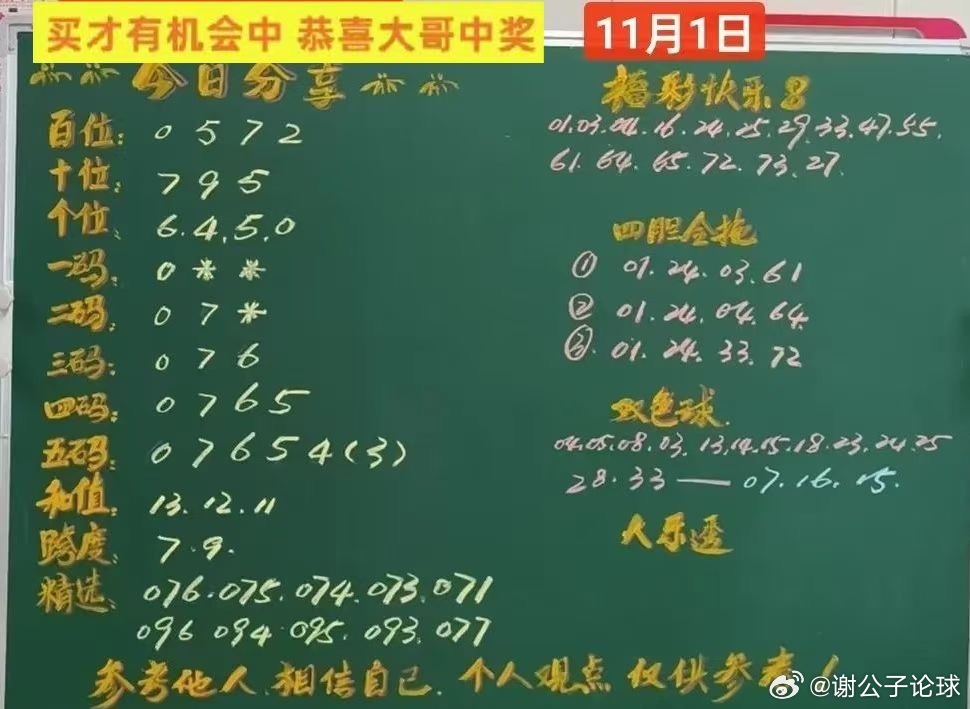 买才有机会中 恭喜大哥中奖
11月1日
今日分享
百位: 0 5 7 2
十位: 7 9 5
个位、 6.4.5.0
一码: 0 * *
二码: 0 7 *
三码: 0 7 6
四码: 0 7 6 5
五码: 0 7 6 5 4 (3)
和值: 13.12.11
跨度: 7.9.
精选、 076.075.074.073.071
096 094 095.093.077
福彩快乐8
01.03.04.16.24.25.29.33.47.55.
61.64.65.72.73.27.
四胆全拖
① 01.24.03.61
② 01.24.04.64
③. 01.24.33.72
双色球.
04.05.08.03.13.14.15.18.23.24.25
28.33 — 07.16.15.
大乐透
参考他人、相信自己. 个人观点 仅供参考!
@谢公子论球